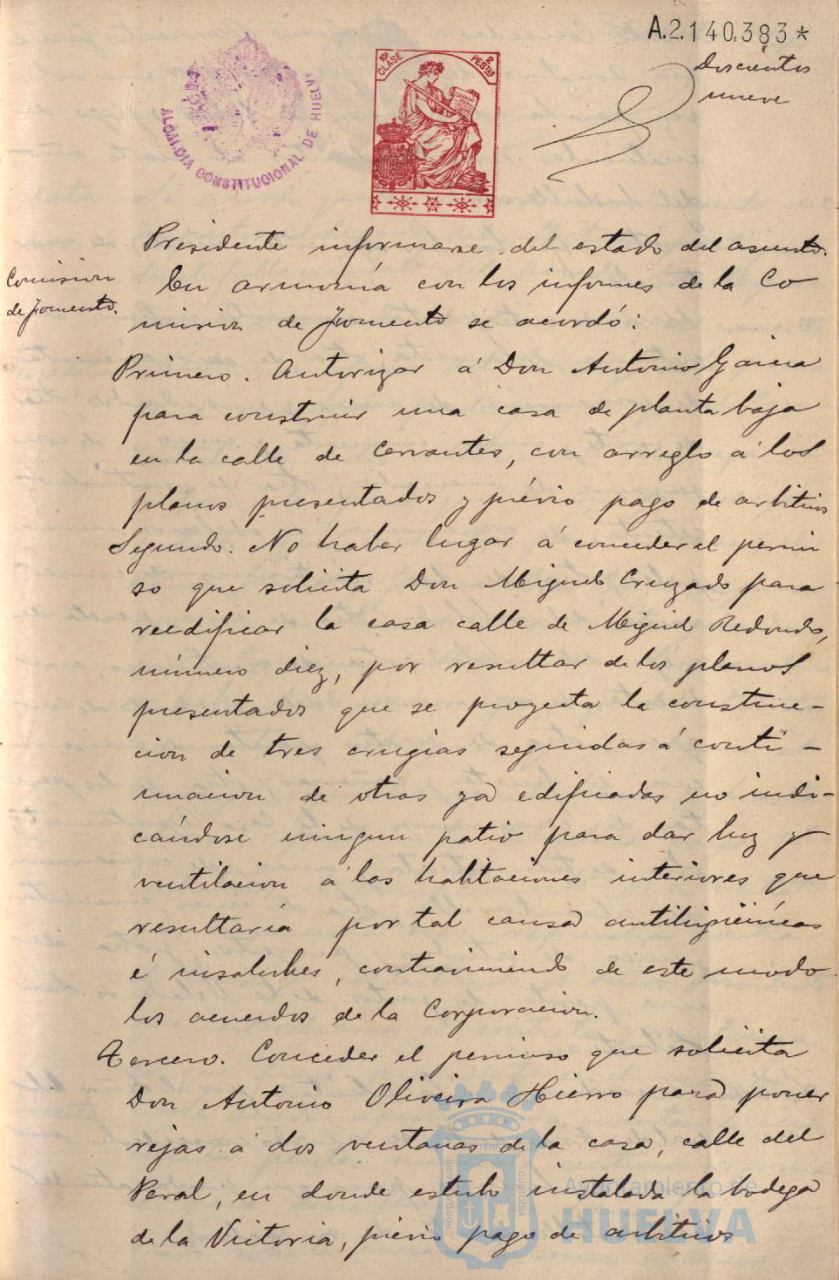 A.2.140,383*
Doscientos
nueve
10ª CLASE
2 PESTAS
ALCALDIA CONSTITUCIONAL DE HUELVA
Presidente informarse del estado del asunto.
Comision
de Fomento.
En armonía con los informes de la Co
mision de Fomento se acordó:
Primero. Autorizar á Don Antonio Garcia
para construir una casa de planta baja
en la calle de Cervantes, con arreglo á los
planos presentados y prévio pago de arbitrios
Segundo. No haber lugar á conceder el permi
so que solicita Don Miguel Cruzado para
reedificar la casa calle de Miguel Redondo,
número diez, por resultar de los planos
presentados que se proyecta la construc-
cion de tres crugias seguidas á conti-
nuacion de otras ya edificadas no indi-
cándose ningun patio para dar luz y
ventilacion á las habitaciones interiores que
resultaría por tal causa antihigiénicas
é insalubles, contraviniendo de este modo
los acuerdos de la Corporacion.
Tercero. Conceder el permiso que solicita
Don Antonio Oliveira Hierro para poner
rejas á dos ventanas de la casa, calle del
Peral, en donde estubo instalada la bodega
de la Victoria, prévio pago de arbitrios
Ayuntamiento de
HUELVA